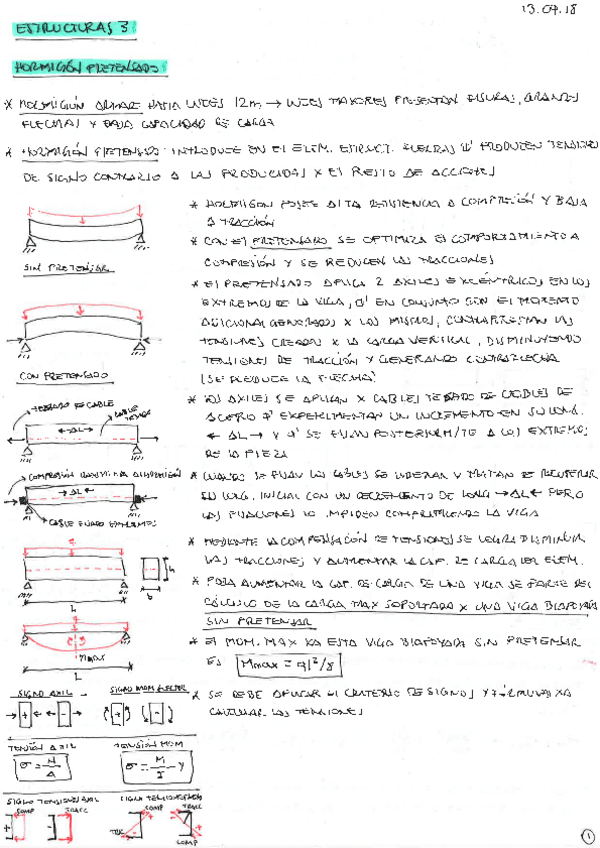 13.09.18
ESTRUCTURAS 3
HORMIGÓN PRETENSADO:
* HORMIGÓN ARMADO HASTA LUCES 12m → LUCES MAYORES PRESENTAN FISURAS, GRANDES
FLECHAS Y BAJA CAPACIDAD DE CARGA
* HORMIGÓN PRETENSADO: INTRODUCE EN EL ELEM. ESTRUCT. FUERZAS Q' PRODUCEN TENSIONES
DE SIGNO CONTRARIO A LAS PRODUCIDAS X EL RESTO DE ACCIONES
SIN PRETENSAR
CON PRETENSADO
* HORMIGÓN POSEE ALTA RESISTENCIA A COMPRESIÓN Y BAJA
A TRACCIÓN
* CON EL PRETENSADO SE OPTIMIZA EL COMPORTAMIENTO A
COMPRESIÓN Y SE REDUCEN LAS TRACCIONES
* EL PRETENSADO APLICA 2 AXILES EXCÉNTRICOS EN LOS
EXTREMOS DE LA VIGA, Q' EN CONJUNTO CON EL MOMENTO
ADICIONAL GENERADOS X LOS MISMOS, CONTRARRESTAN LAS
TENSIONES CREADAS X LA CARGA VERTICAL, DISMINUYENDO
TENSIONES DE TRACCIÓN Y GENERANDO CONTRAFLECHA
(SE REDUCE LA FLECHA)
* LOS AXILES SE APLICAN X CABLES TESADO DE CABLES DE
ACERO Q' EXPERIMENTAN UN INCREMENTO EN SU LONG.
← ΔL → Y Q' SE FIJAN POSTERIORM/TE A LOS EXTREMOS
DE LA PIEZA
* CUANDO SE FIJAN LOS CABLES SE LIBERAN Y TRATAN DE RECUPERAR
SU LONG. INICIAL CON UN DECREMENTO DE LONG → ΔL ← PERO
LAS FIJACIONES LO IMPIDEN COMPRIMIENDO LA VIGA
* MEDIANTE LA COMPENSACIÓN DE TENSIONES SE LOGRA DISMINUIR
LAS TRACCIONES Y AUMENTAR LA CAP. DE CARGA DEL ELEM.
* PARA AUMENTAR LA CAP. DE CARGA DE UNA VIGA SE PARTE DEL
CÁLCULO DE LA CARGA MAX SOPORTADA X UNA VIGA BIAPOYADA
SIN PRETENSAR
* EL MOM. MAX XA ESTA VIGA BIAPOYADA SIN PRETENSAR
ES Mmax = ql²/8
* SE DEBE APLICAR EL CRITERIO DE SIGNOS Y FÓRMULAS XA
CALCULAR LAS TENSIONES
TESADO DE CABLE
CABLE TESADO
← ΔL →
COMPRESIÓN
→ ΔL ←
CABLE FIJADO
q
h
b
L
q
Mmax
L
SIGNO AXIL
SIGNO MOM FLECTOR
+ - + -
TENSIÓN AXIL
TENSIÓN MOM
σ = N/A
σ = M/I · y
SIGNO TENSIONES AXIL
COMP TRACC
+ -
COMP TRACC
TRACC COMP
1